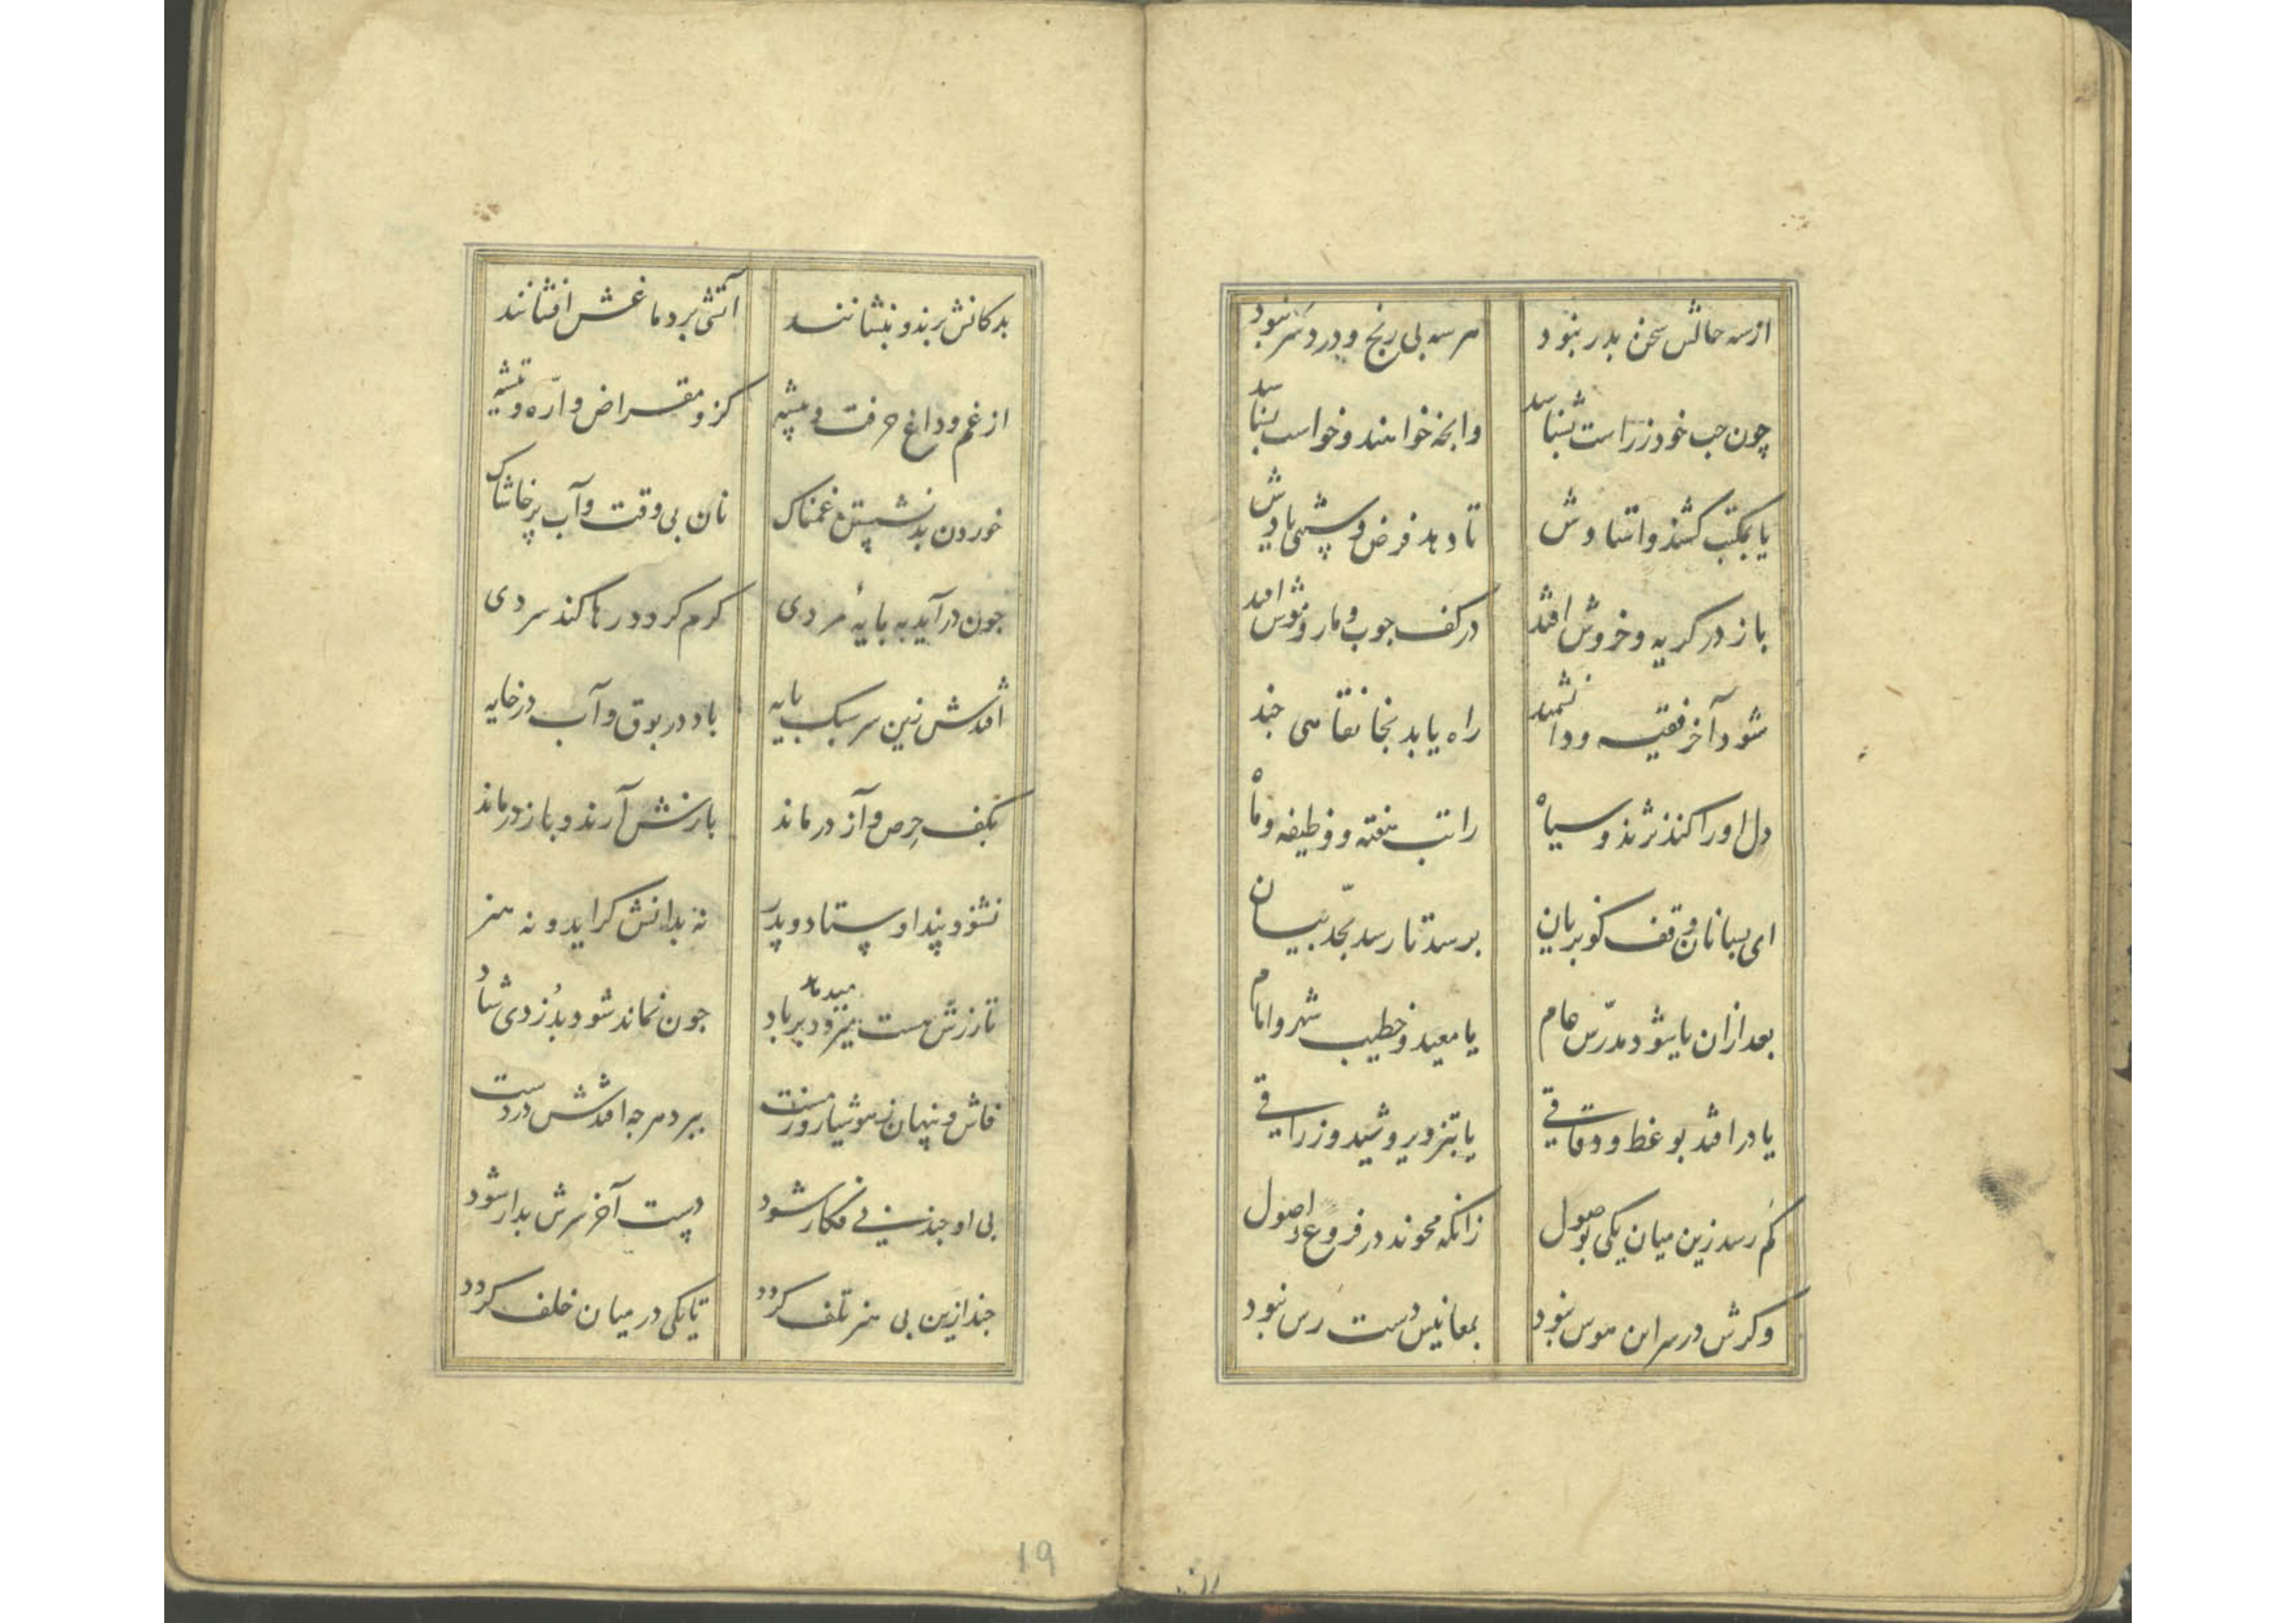 ازسه حالش سخن بدر نبود هر سه بی رنج و درد سر نبود
چون حب خود زراست بشناسد وانچه خوانند و خواست بشناسد
یا بمکتب کشند واستادش تا دهد فرض و سنتی یادش
باز در کریه و خروش افتد در کف جوب و مار و موش افتد
شود آخر فقیه و دانشمند راه یابد بخانقاهی جند
دل او را کند نژند و سیاه راتب هفته و وظیفه و ماه
ای بسا نان وقف کو بریان برسد تا رسد بحد بیان
بعد ازان یا شود مدرّس عام یا معید و خطیب شهر و امام
یا در افتد بوعظ و دقاقی یا بتزویر و شید و زراقی
کم رسد زین میان یکی بوصول زانکه محوند در فروع و اصول
وکرش در سر این هوس نبود بمعانیش دست رس نبود
بدکانش برند و بنشانند آتشی بر دماغش افشانند
از غم و داغ حرفت و پیشه کز و مقراض و ارّه و تیشه
خوردن بد نشستن غمناک نان بی وقت و آب پر خاشاک
جون در آید به پایهٔ مردی کرم کردد رها کند سردی
افتدش زین سر سبک پایه باد در بوق و آب در خایه
بکف حرص و آز در ماند بازنش آرند و باز درماند
نشنود پند اوستاد و پدر نه بدانش کراید و نه هنر
تا زرش هست میدهد برباد جون نماند شود بدزدی شاد
فاش و پنهان ز هوشیار و ز مست ببرد هرجه افتدش در دست
بی او جند بی فکار شود دست آخر سرش بدار شود
جند ازین بی هنر تلف کردد تا یکی در میان خلف کردد
19